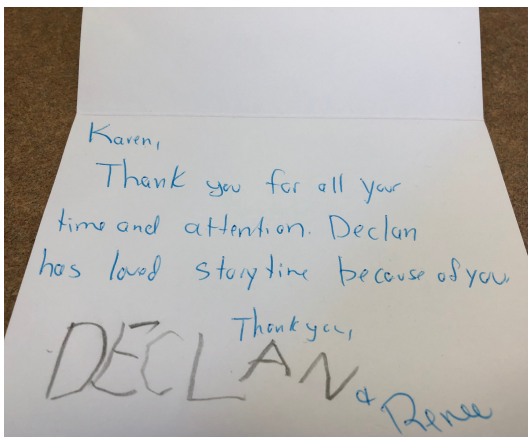 Karen,
Thank you for all your
time and attention. Declan
has loved storytime because of you.
Thank you,
DECLAN
& Renee